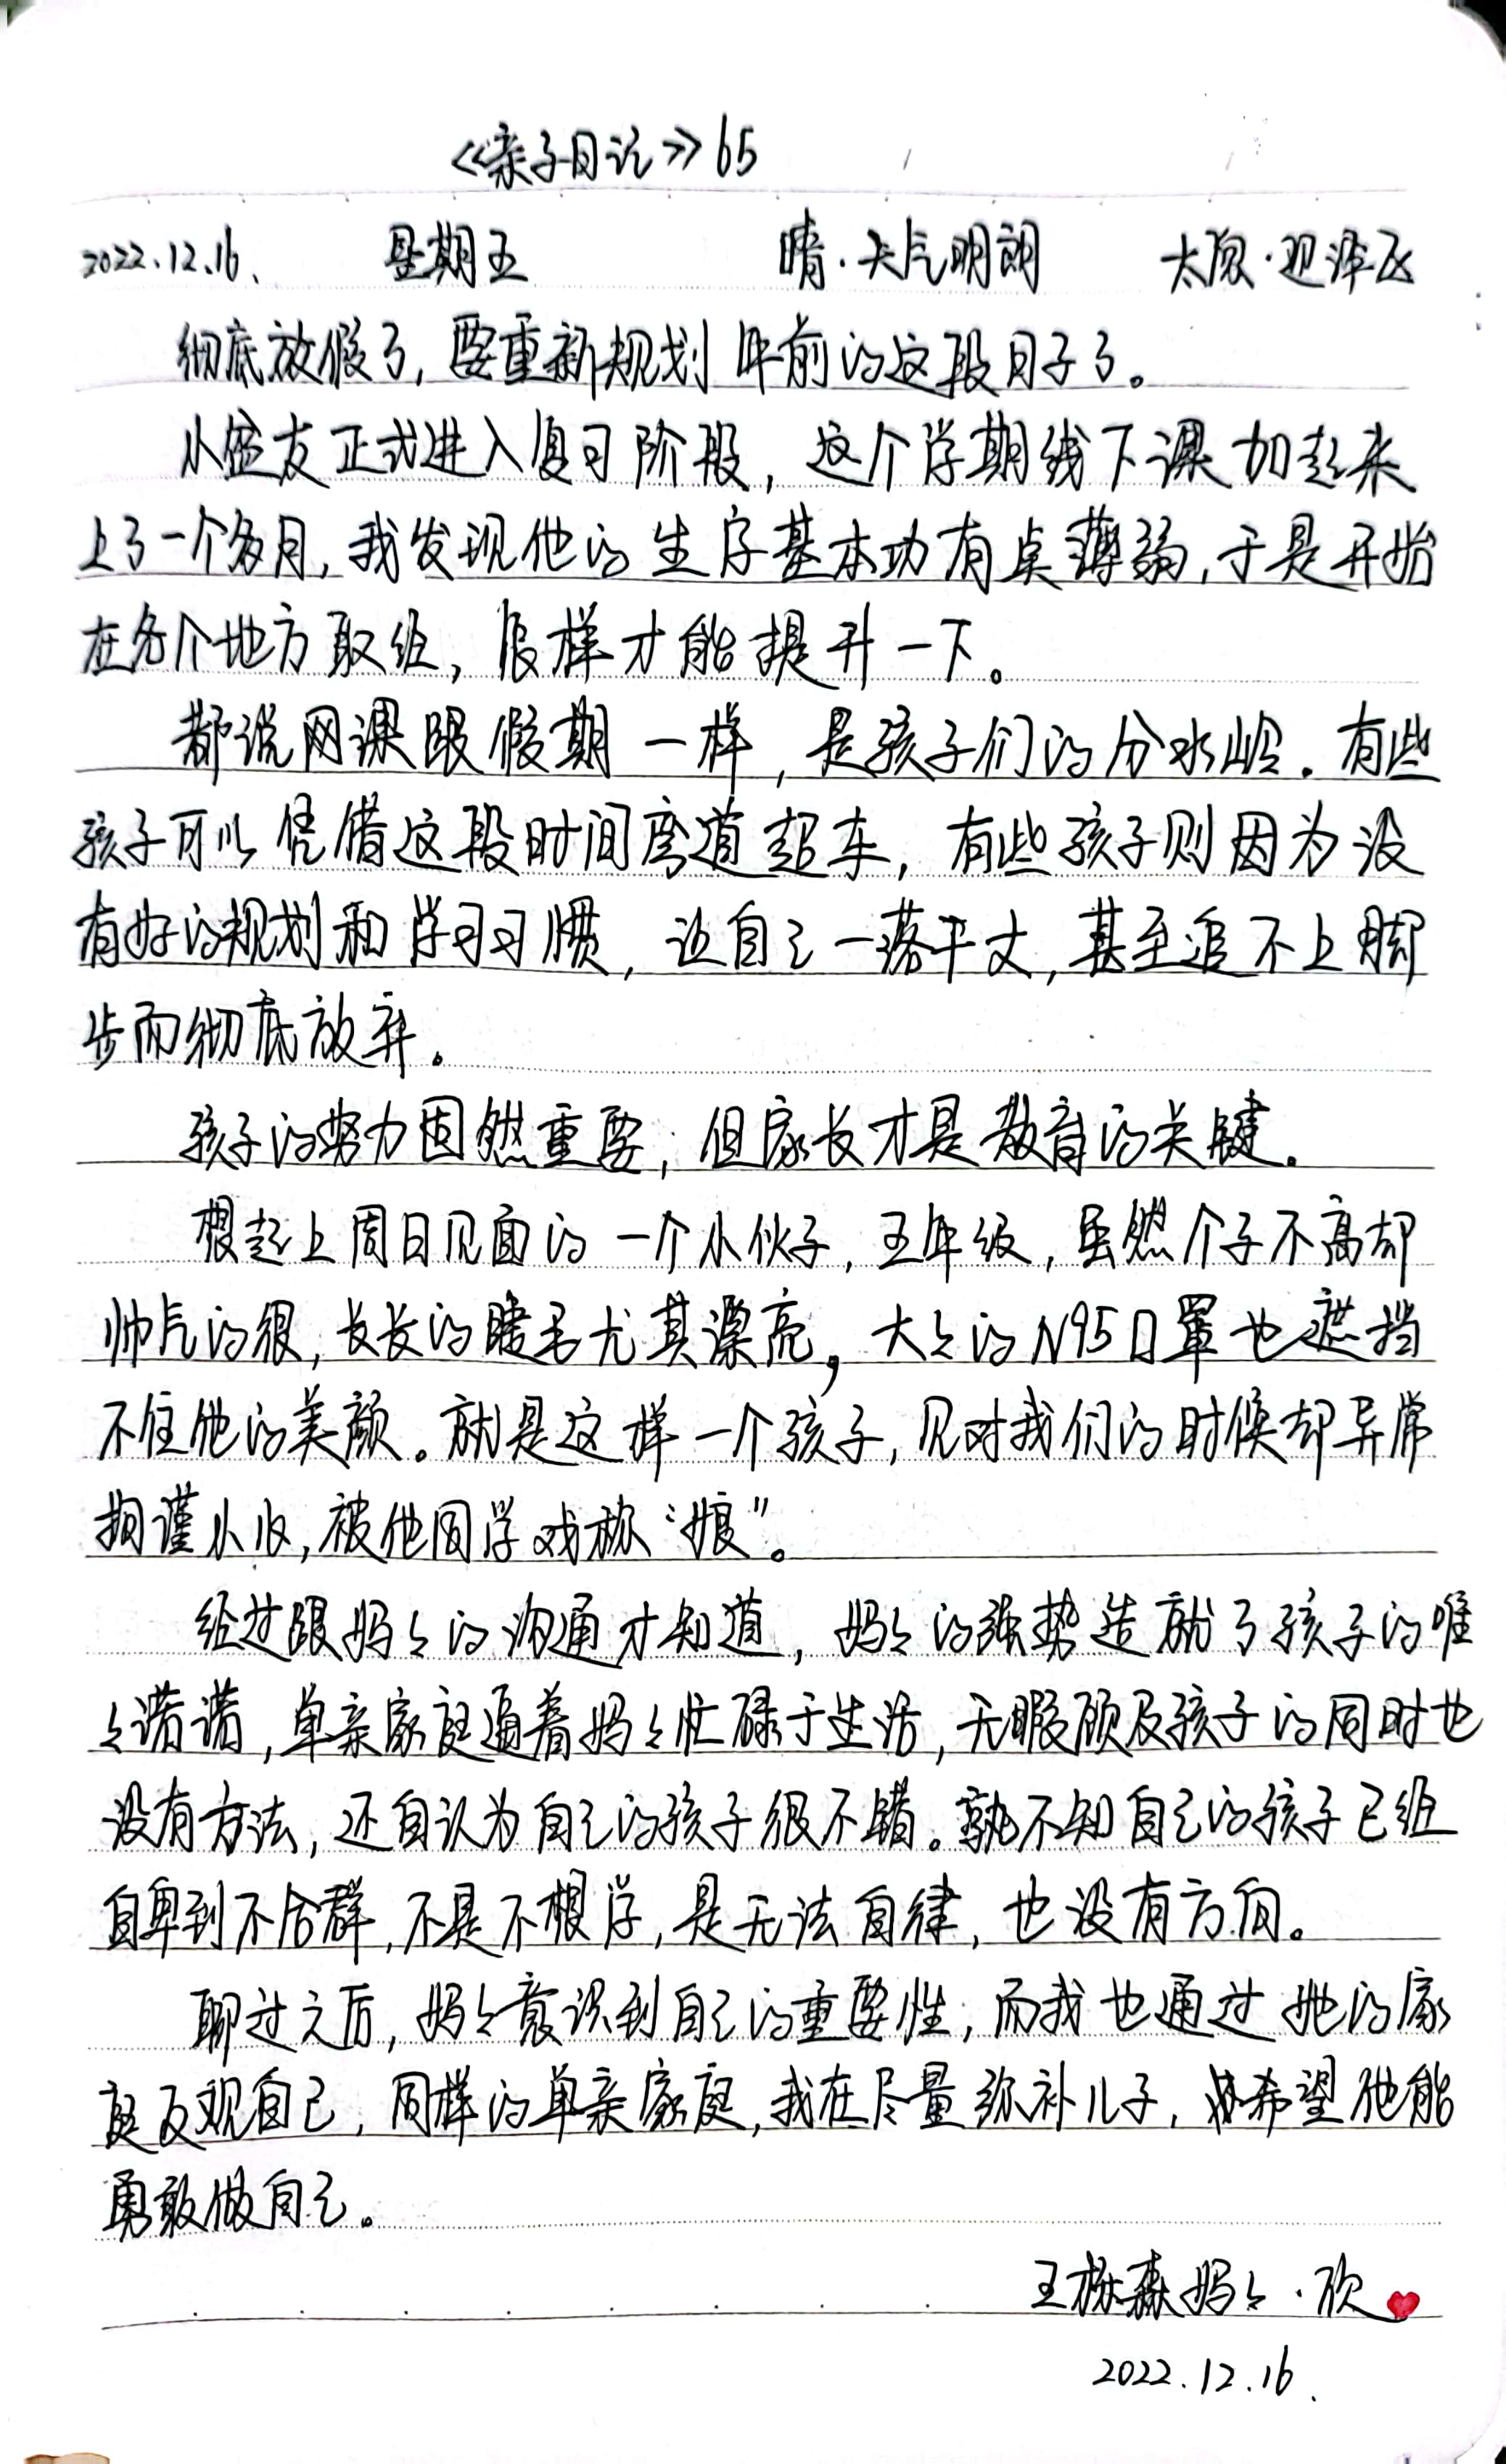 《亲子日记》65
2022.12.16、 星期五 晴·天气明朗 太原·迎泽区
彻底放假了，要重新规划年前的这段日子了。
小盆友正式进入复习阶段，这个学期线下课加起来
上了一个多月，我发现他的生字基本功有点薄弱，于是开始
在各个地方取经，怎样才能提升一下。
都说网课跟假期一样，是孩子们的分水岭。有些
孩子可以凭借这段时间弯道超车，有些孩子则因为没
有好的规划和学习习惯，让自己一落千丈，甚至追不上脚
步而彻底放弃。
孩子的努力固然重要，但家长才是教育的关键。
想起上周日见面的一个小伙子，五年级，虽然个子不高却
帅气的很，长长的睫毛尤其漂亮，大々的N95口罩也遮挡
不住他的美颜。就是这样一个孩子，见对我们的时候却异常
拘谨小心，被他同学戏称“娘”。
经过跟妈々的沟通才知道，妈々的强势造就了孩子的唯
々诺诺，单亲家庭逼着妈々忙碌于生活，无暇顾及孩子的同时也
没有方法，还自认为自己的孩子很不错。孰不知自己的孩子已经
自卑到不合群，不是不想学，是无法自律，也没有方向。
聊过之后，妈々意识到自己的重要性，而我也通过她的家
庭反观自己，同样的单亲家庭，我在尽量弥补儿子，希望他能
勇敢做自己。
王栐森妈々·欣
2022.12.16.